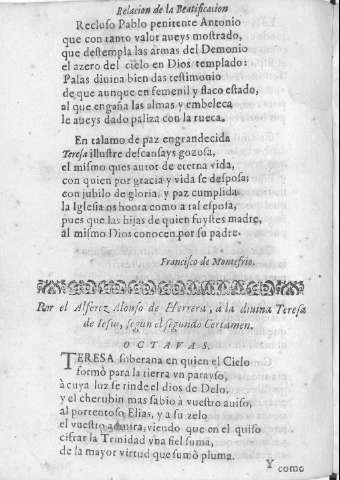 Relacion de la Beatificacion
Recluso Pablo penitente Antonio
que con tanto valor aueys mostrado,
que destempla las armas del Demonio
el azero del cielo en Dios templado:
Palas diuina bien das testimonio
de que aunque en femenil y flaco estado,
al que engaña las almas y embeleca
le aueys dado paliza con la rueca.
En talamo de paz engrandecida
Teresa illustre descansays gozosa,
el mismo ques autor de eterna vida,
con quien por gracia y vida se desposa;
con jubilo de gloria, y paz cumplida
la Iglesia os honra como a tal esposa,
pues que las hijas de quien fuystes madre,
al mismo Dios conocen por su padre.
Francisco de Montefrio.
Por el Alferez Alonso de Herrera, a la diuina Teresa
de Iesus, segun el segundo Certamen.
OCTAVAS.
TERESA soberana en quien el Cielo
formò para la tierra vn parayso,
à cuya luz se rinde el dios de Delo,
y el cherubin mas sabio à vuestro auiso,
al portentoso Elias, y a su zelo
el vuestro admira, viendo que en el quiso
cifrar la Trinidad vna fiel suma,
de la mayor virtud que sumò pluma.
Y como